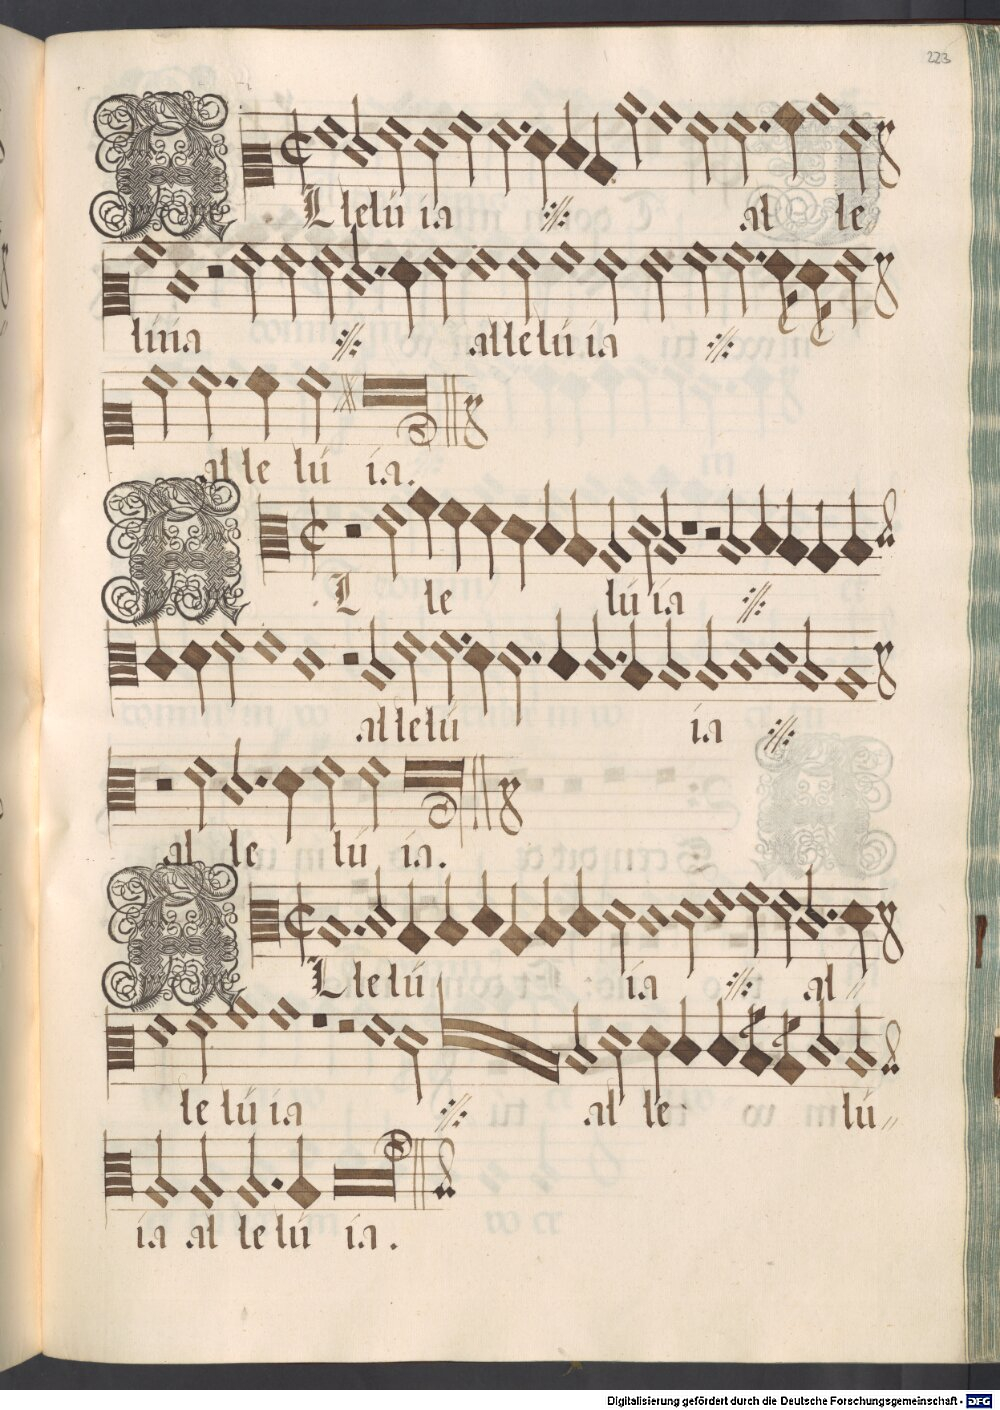 223
ALleluia ·//· al le
luia ·//· alleluia ·//·
alleluia.
ALleluia ·//·
alleluia ·//·
alleluia.
ALleluia ·//· al //
leluia ·//· alle lu //
ia alleluia.
Digitalisierung gefördert durch die Deutsche Forschungsgemeinschaft - DFG